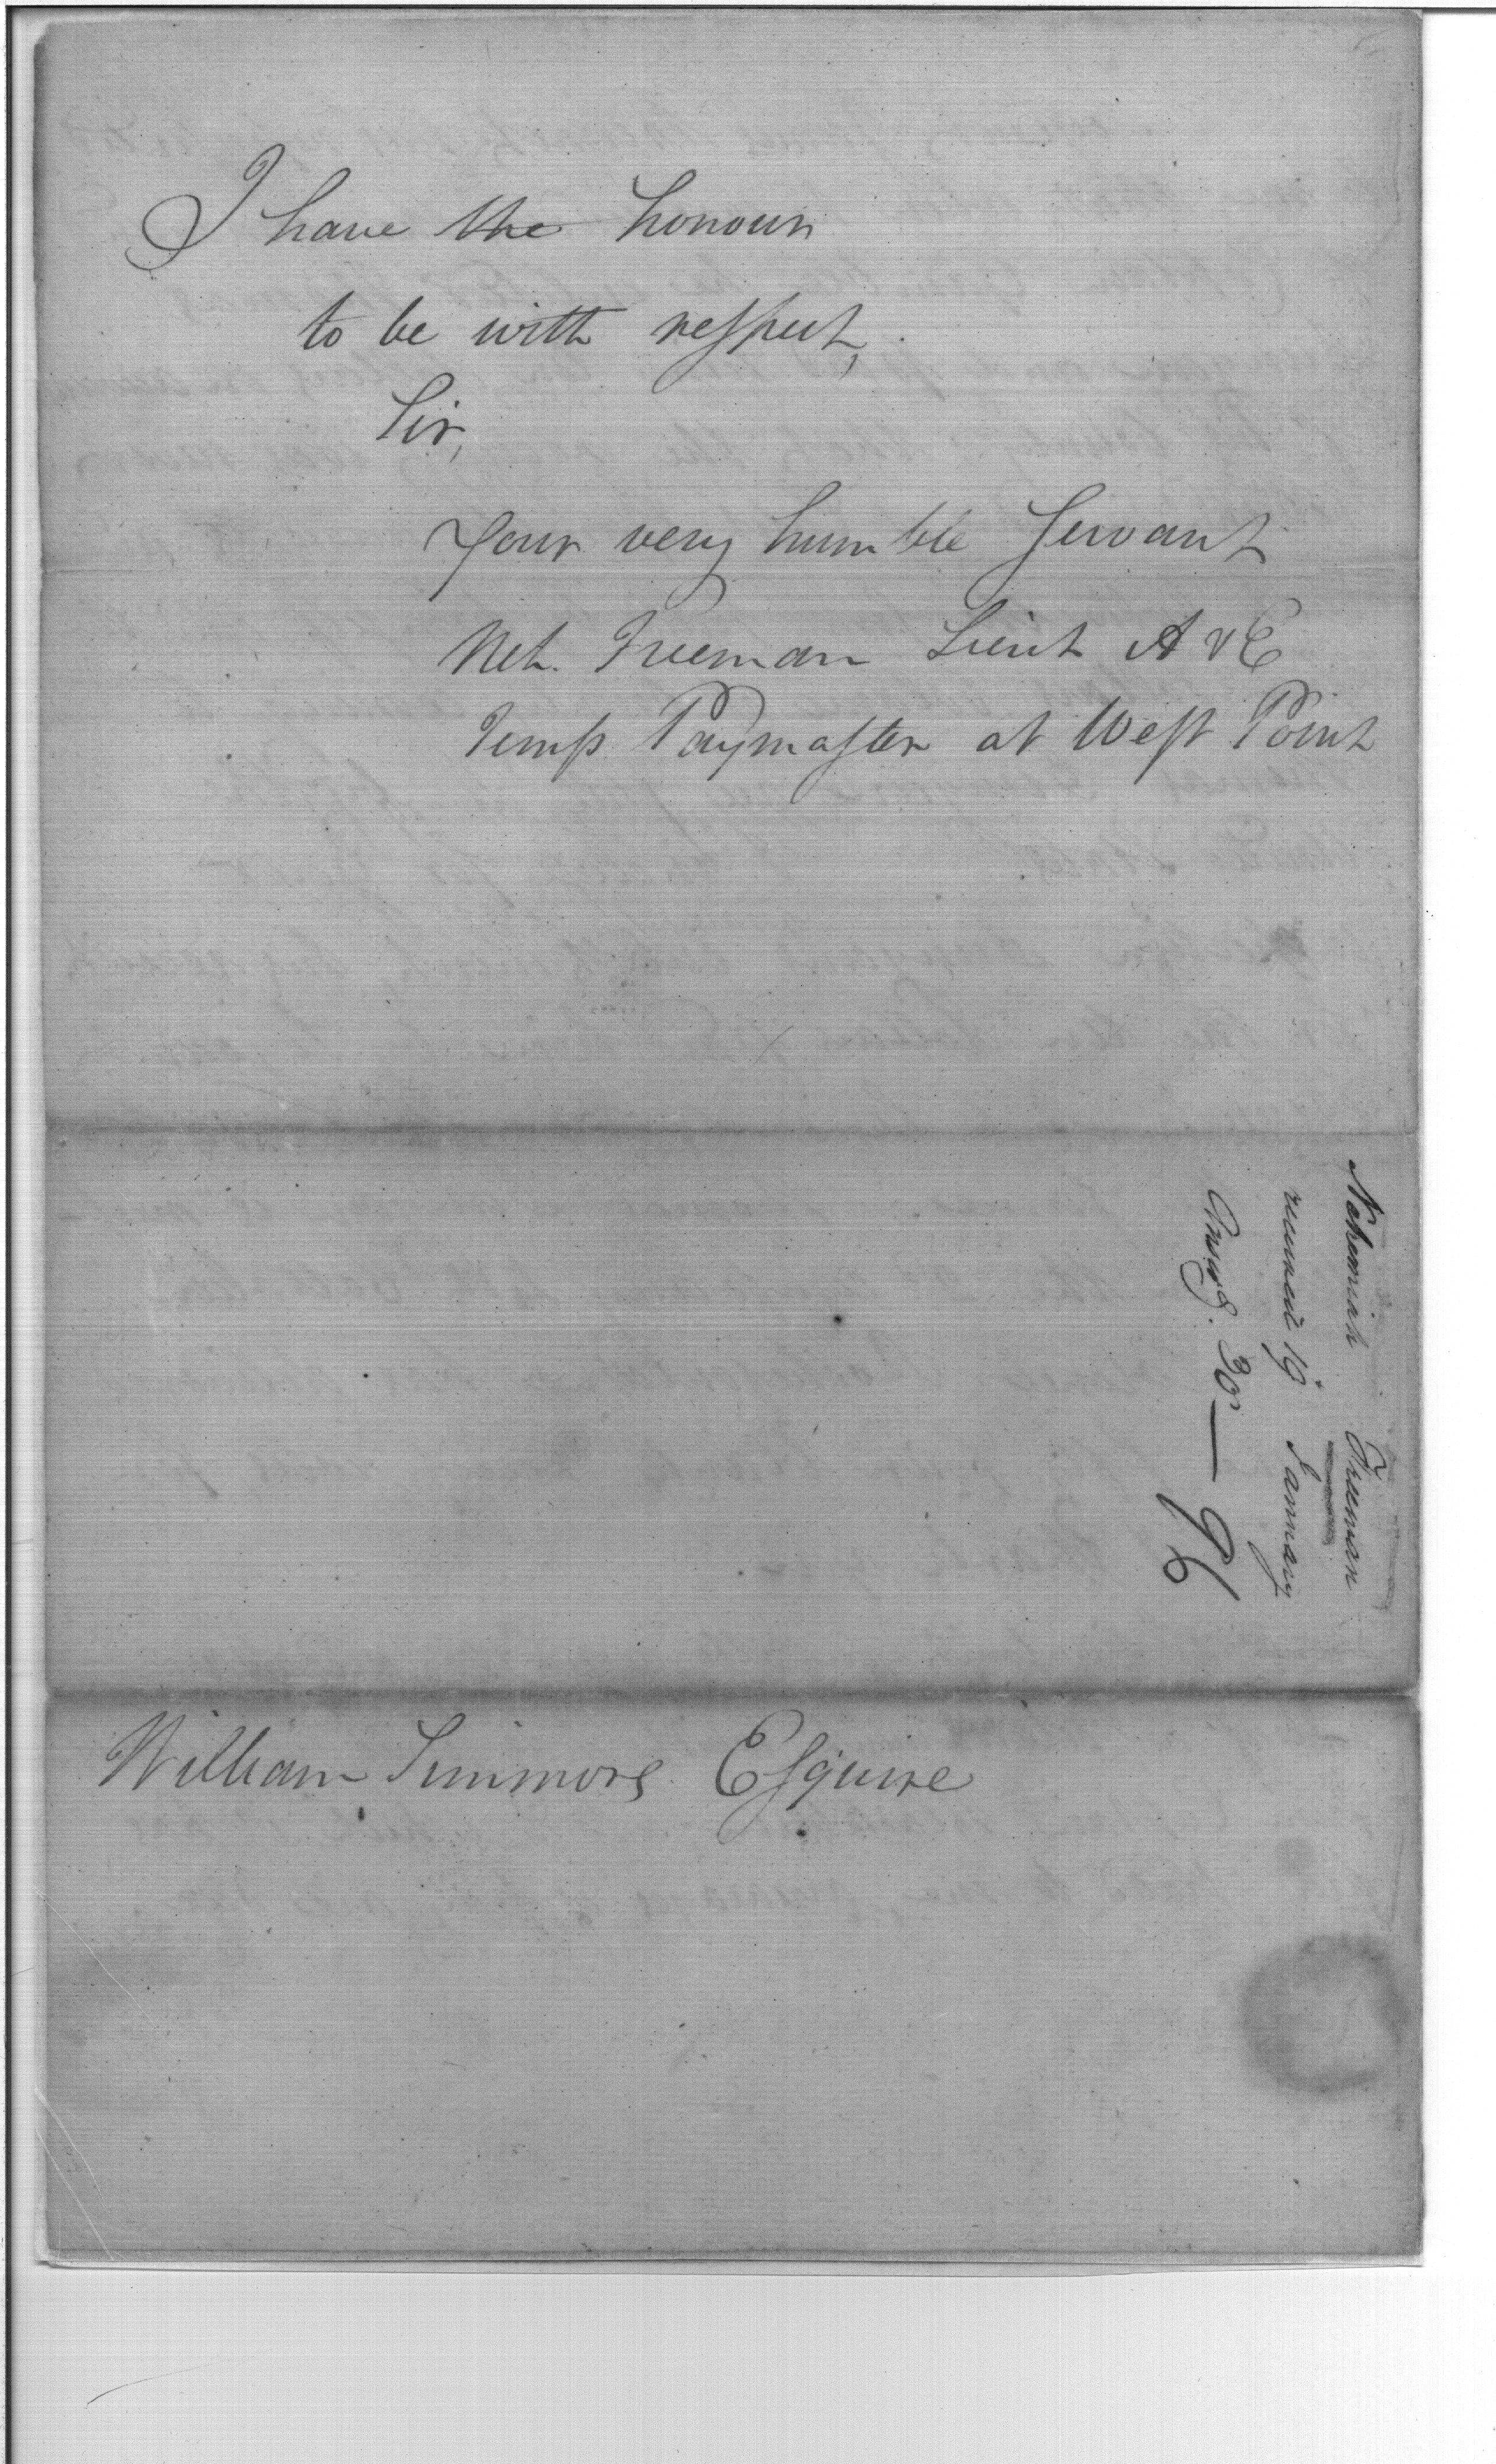 I have the honour
to be with respect,
Sir,
Your very humble Servant
Neh. Freeman Lieut A & E
Temp Paymaster at West Point
Nehemiah Freeman
received 19 January
Answd. 20 — 96
William Simmons Esquire